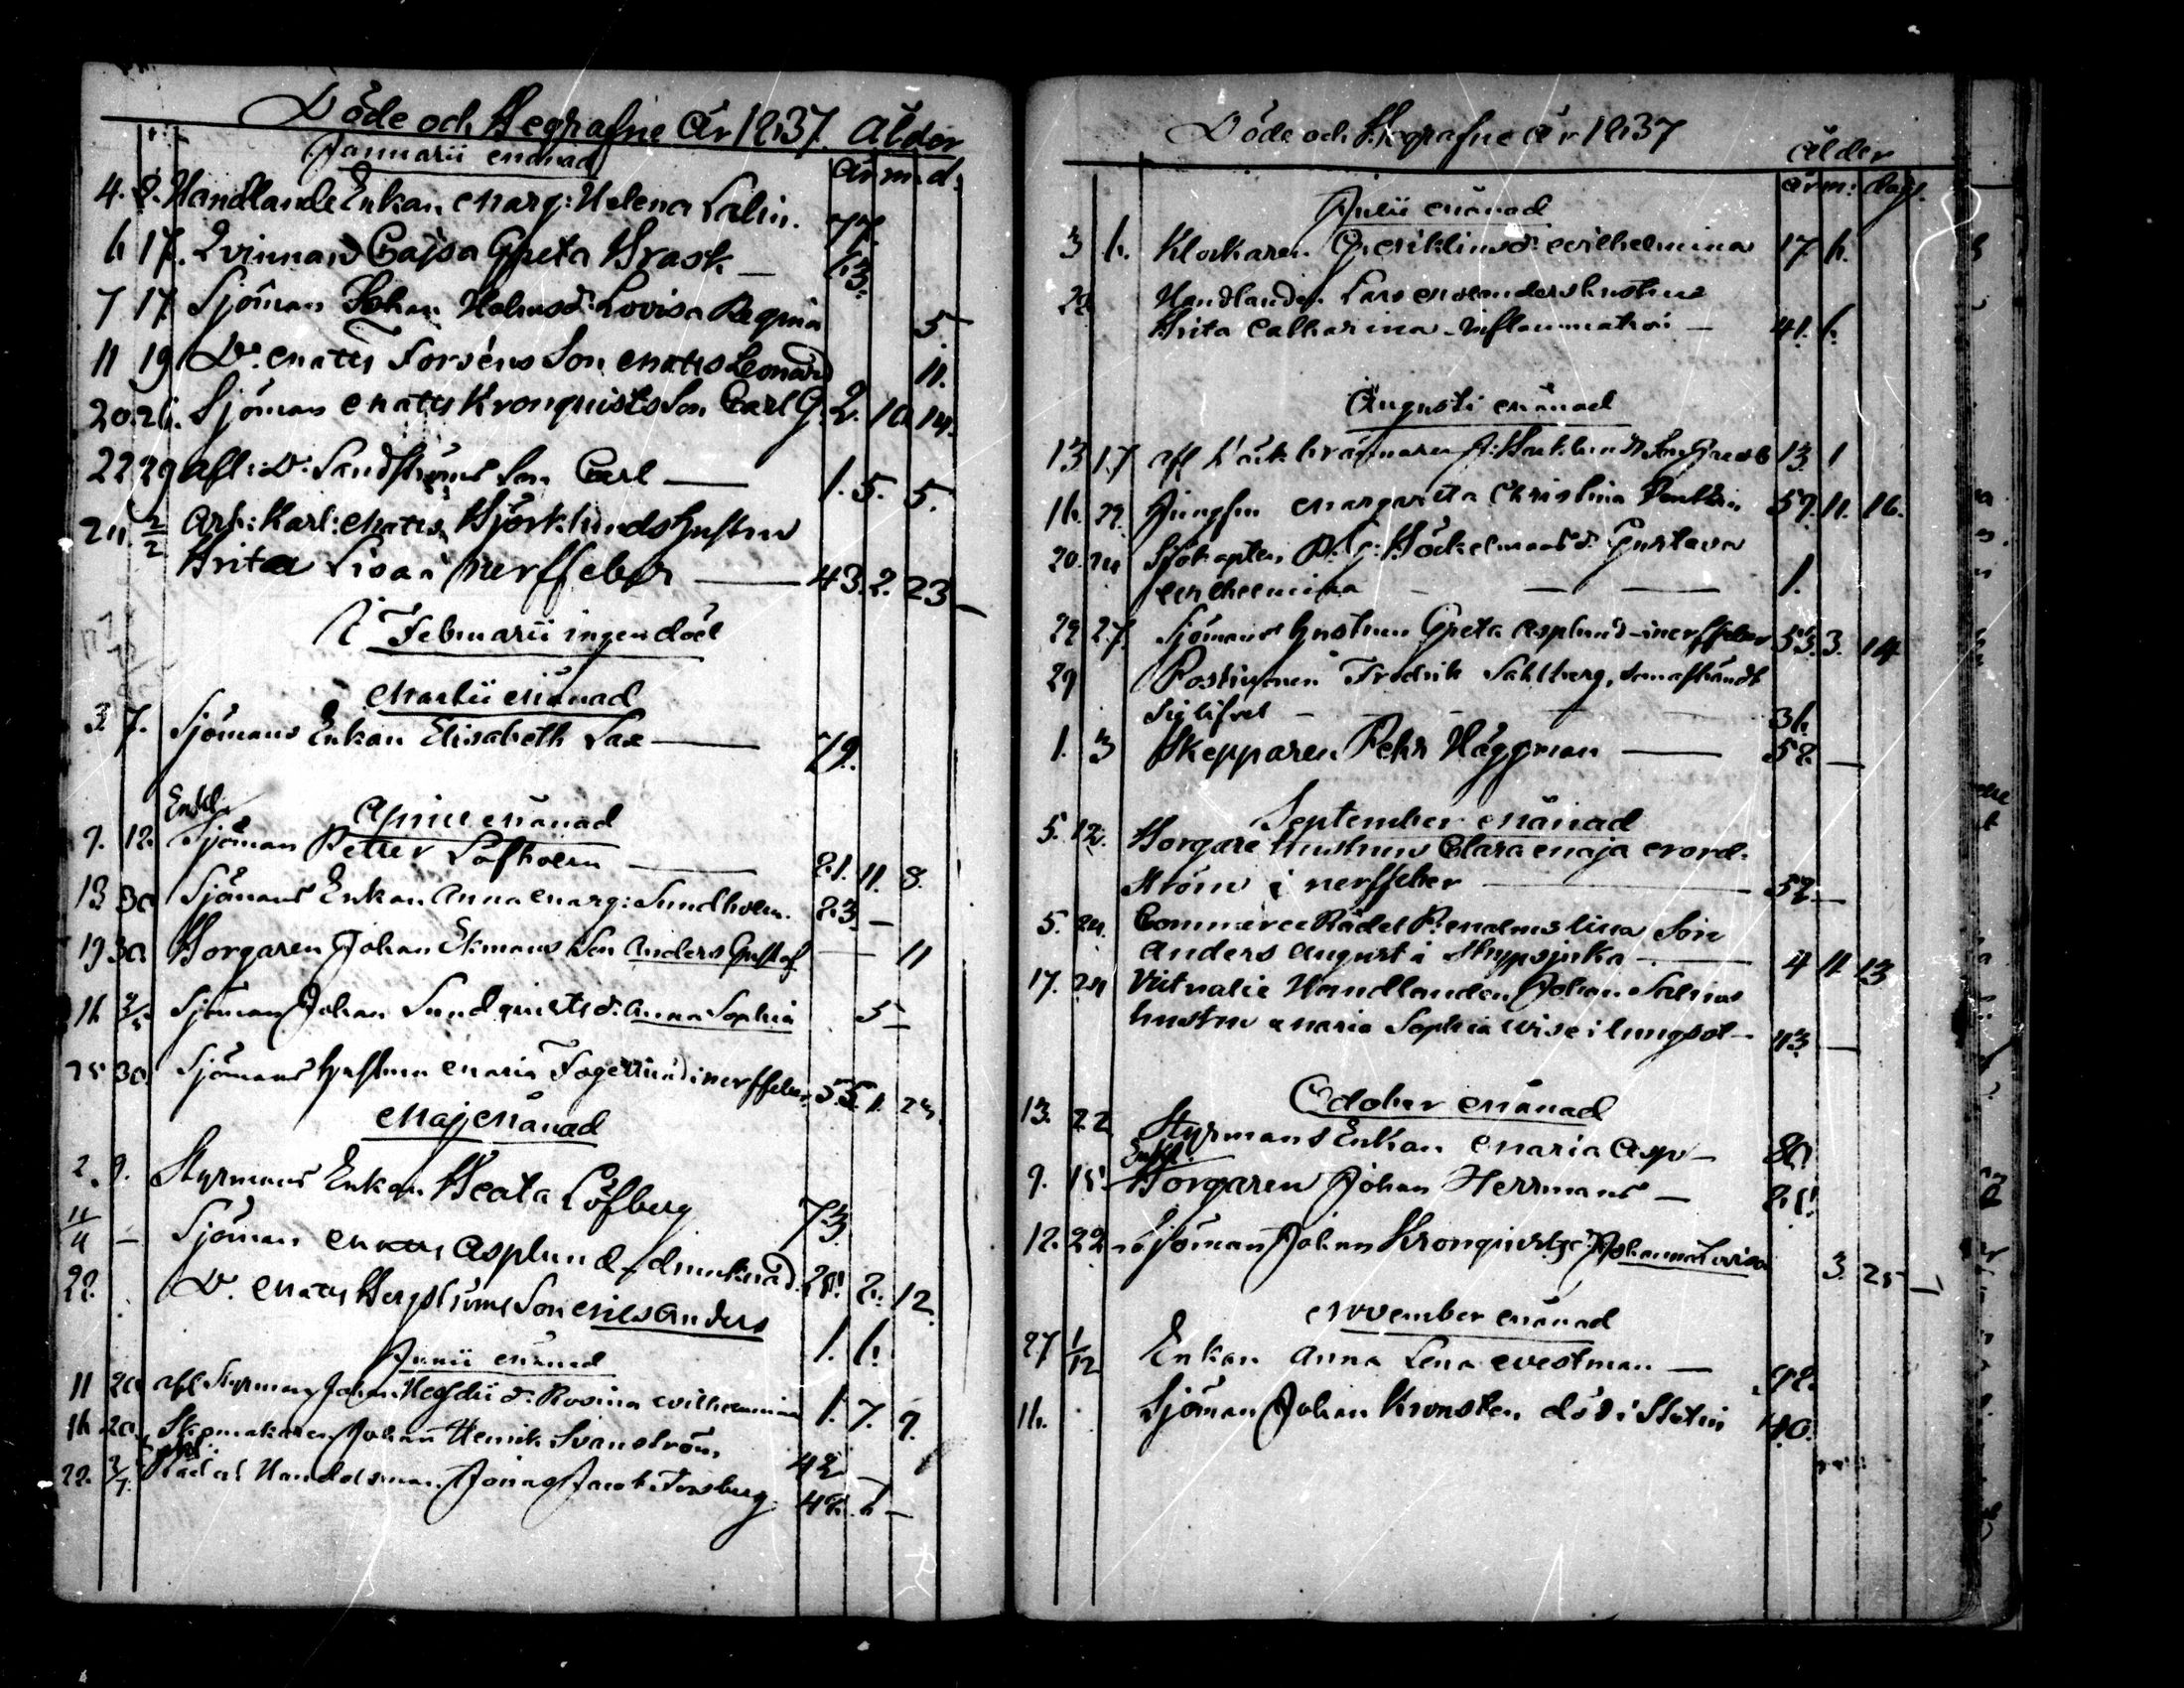 Döde och Begrafne År 1837. Ålder
Januarii Månad År m. d.
4. 8. Handlande Enkan Marg: Helena Salin. 77.
6 17. Qvinnan Cajsa Greta Brask — 63.
7 17 Sjöman Johan Holmsd: Lovisa Regina 5
11 19 D:o Matts Forséns Son Matts Leonard 11.
20. 26. Sjöman Matts Kronquists Son Carl G. 2. 10. 14.
22 29 Afl: D:o Sandströms Son Carl — 1. 5. 5.
24 2/2 Arb: Karl: Matts Björklunds Hustru
Brita Lisa i nerffeber — 43. 2. 23 —
I Februarii ingen död
Martii Månad
3. 7. Sjömans Enkan Elisabeth Lax — 79.
Enkl.
April Månad
9. 12. Sjöman Petter Löfholm — 81. 11. 8.
13 30 Sjömans Enkan Anna Marg: Sundholm. 83 —
19 30 Borgaren Johan Ekmans Son Anders Gustaf — 11
16 2/5 Sjöman Johan Sundquists d: Anna Sophia 5 —
25 30 Sjömans Hustrun Maria Fagerlund i nerffeber 55. 1. 23.
Maj Månad
2. 9. Styrmans Enkan Beata Löfberg 73
11/4 — Sjöman Matts Asplund - drunknad. 28. 2. 12.
22. D:o Matts Bergströms Son Nils Anders 1. 6.
Junii Månad
11 20 afl Styrman Johan d: Rosina Wilhelmina 1. 7. 9.
16 20. Skomakaren Johan Henrik Svanström 42
Enkl:
22. 2/7. Rådet Handelsman Jonas Jacob Forsberg. 48. 6 —
Döde och Begrafne År 1837
Ålder
År m: dag.
Julii Månad
3 6. Klockaren G. Wiklunds d: Wilhelmina 17 6.
29 Handlanden Lars Molanders hustru
Brita Catharina - Inflammation — 41. 6.
Augusti Månad
13 17 afl J. Backlunds Son 13. 1
16. 29. Jungfru Margareta Christina 57. 11. 16.
20. 24 Sjökapten P. G: Böckelmans d: Gustava
Wilhelmina — — — 1.
22 27. Sjömans Hustrun Greta Asplund - i nerffeber 53. 3. 14
29 Postiljonen Fredrik Sahlberg, som afhändt
Sig lifvet — — — 36.
1. 3 Skepparen Pehr Häggman — 58. —
September Månad
5. 12. Borgare Hustrun Clara Maja Nord-
ström i nerffeber — 52 —
5. 24. Commerce Rådet P. Malms lilla Son
Anders August i Strypsjuka — 4 11 13
17. 24 Victualie Handlanden Johan Salins
hustru Maria Sophia Wise i lungsot — 43 —
October Månad
13. 22 Styrmans Enkan Maria Asp — 80
Enkl.
9. 15. Borgaren Johan Herrmans — 81.
12. 22 Sjöman Johan Kronquists d: Johanna Lovisa 3. 25 —
November Månad
27 1/12 Enkan Anna Lena Westman — 92.
16. Sjöman Johan Kronsten död i Stettin 40.